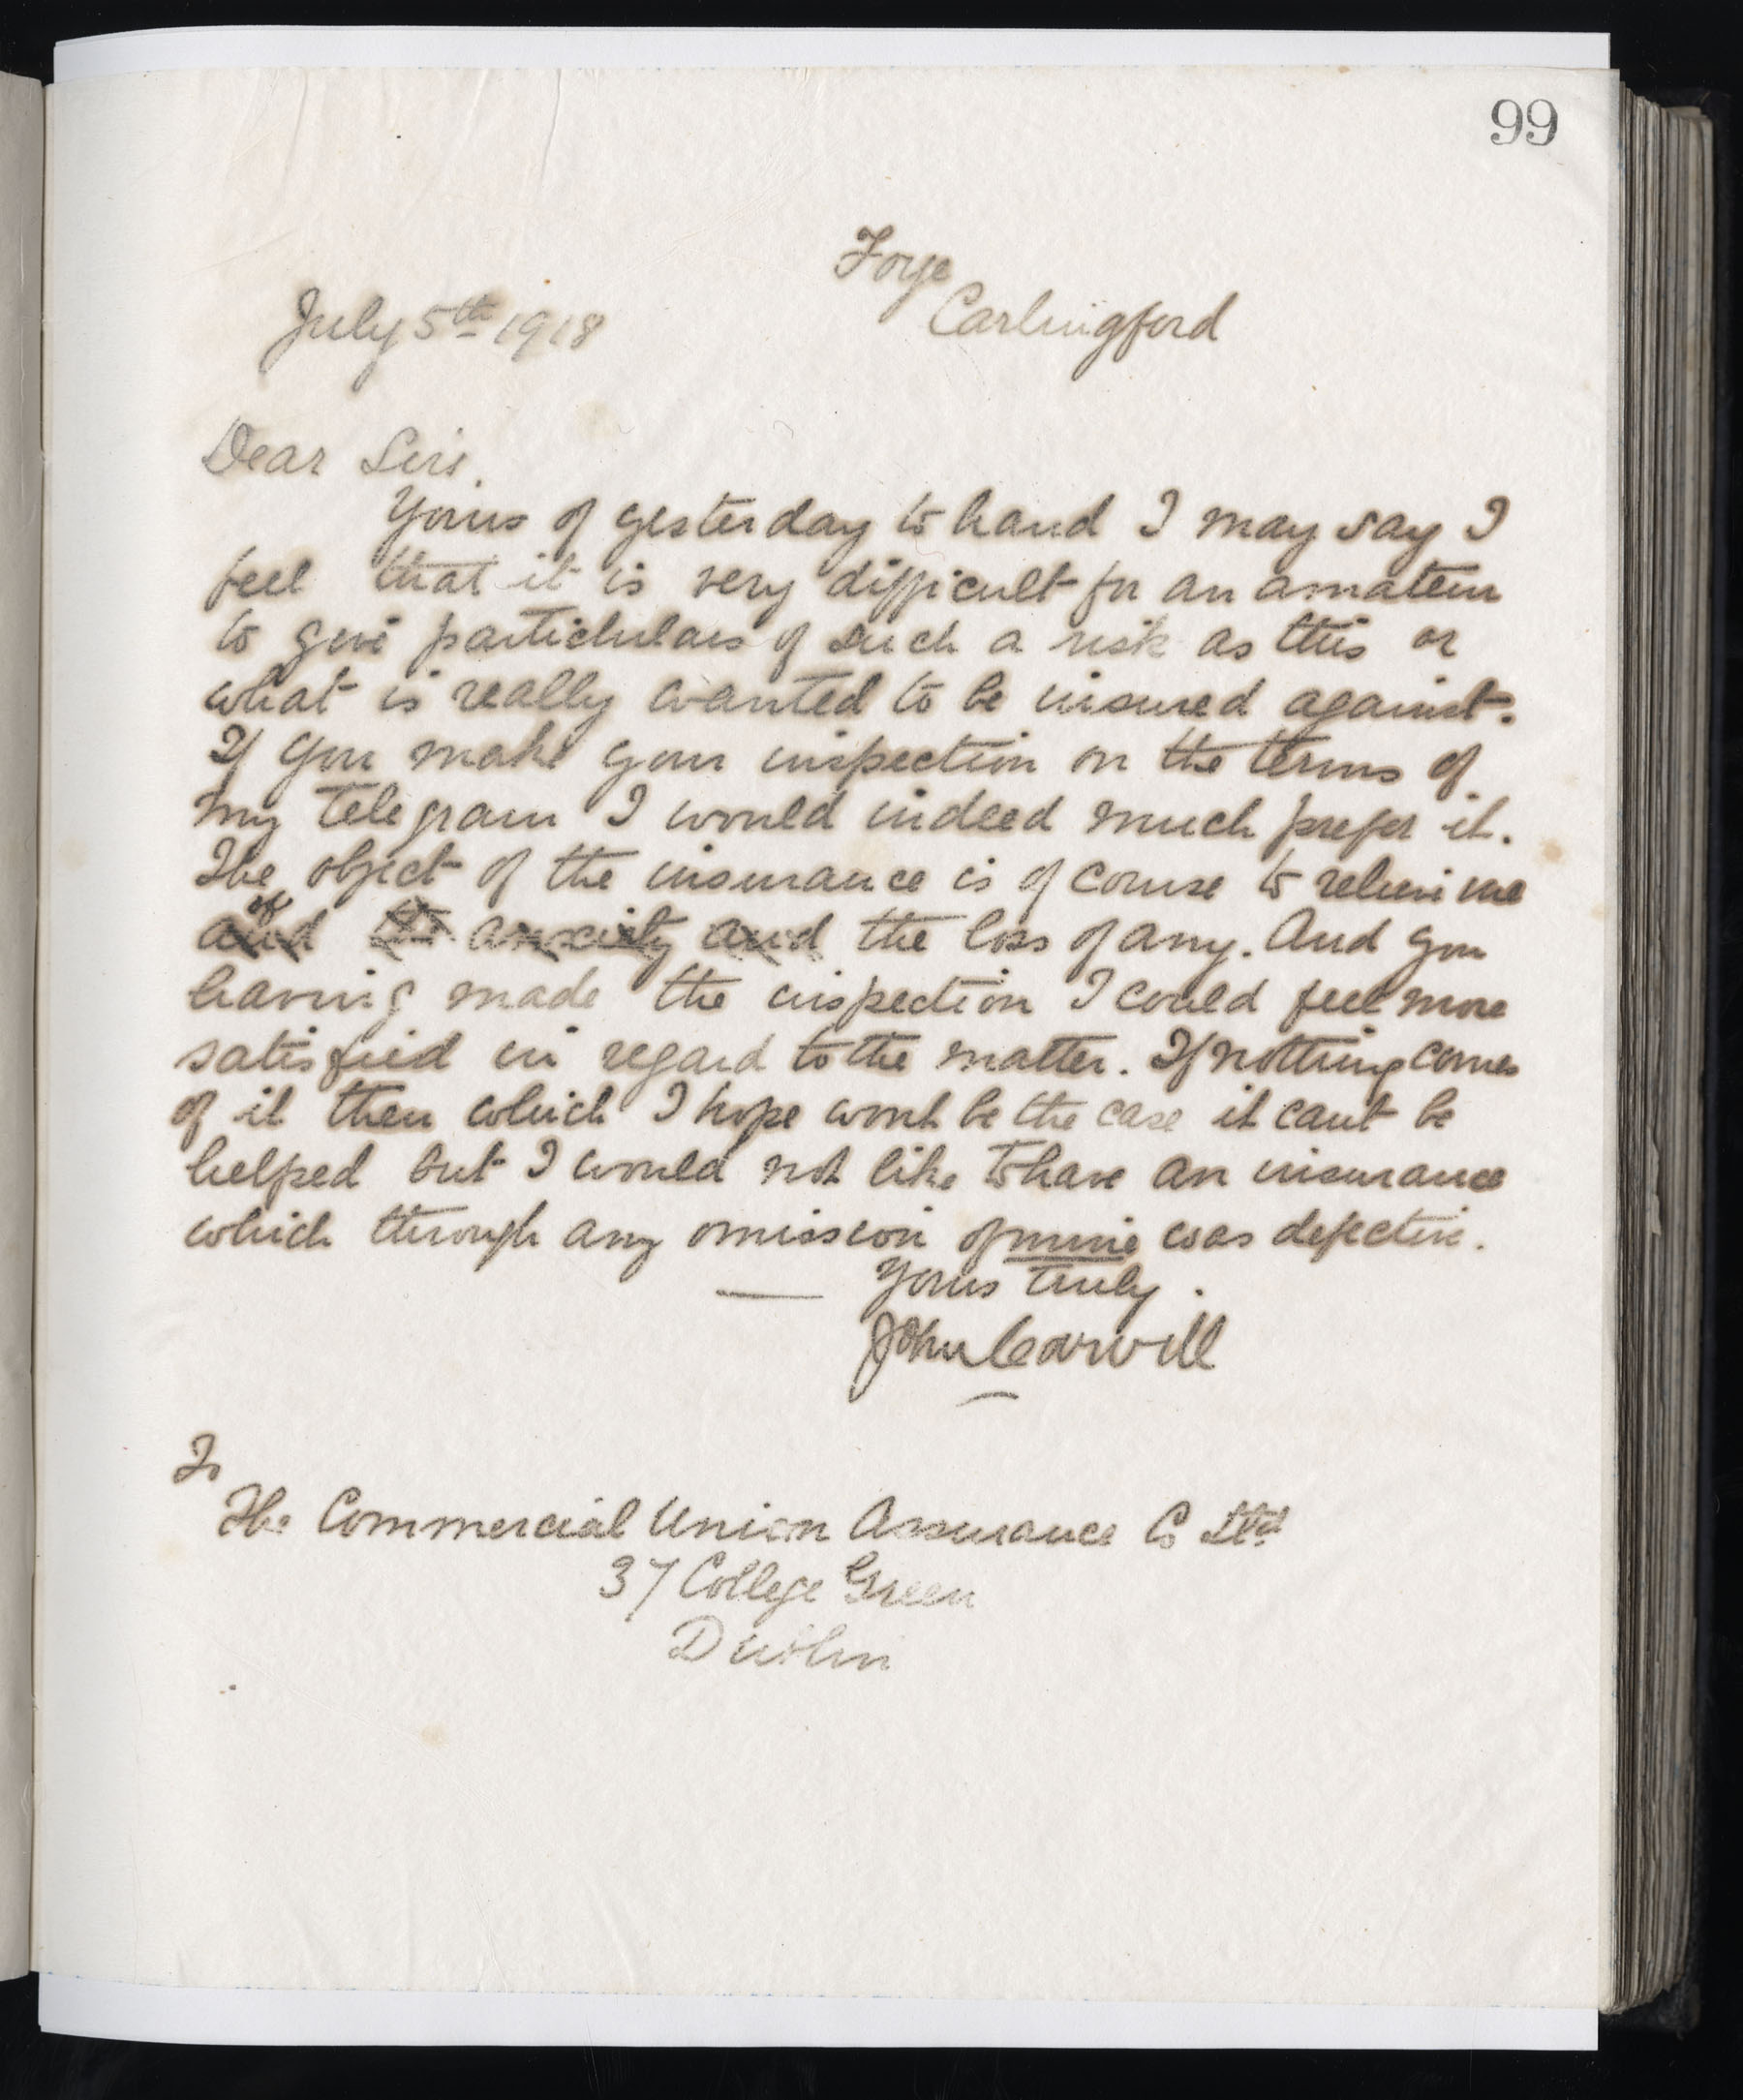 99
Foye
July 5th 1918 Carlingford
Dear Sirs,
Yours of yesterday to hand I may say I
feel that it is very difficult for an amateur
to give partichulars of such a risk as this or
what is really wanted to be insured against.
If you make your inspection on the terms of
my telegram I would indeed much prefer it.
The object of the insurance is of course to relieve me
of
and the anxciety and the loss of any. And you
having made the inspection I could feel more
satisfied in regard to the matter. If nothing comes
of it then which I hope wont be the case it cant be
helped but I would not like to have an insurance
which through any omission of mine was defective.
Yours truly.
John Carvill
To
The Commercial Union Assurance Co Ltd
37 College Green
Dublin